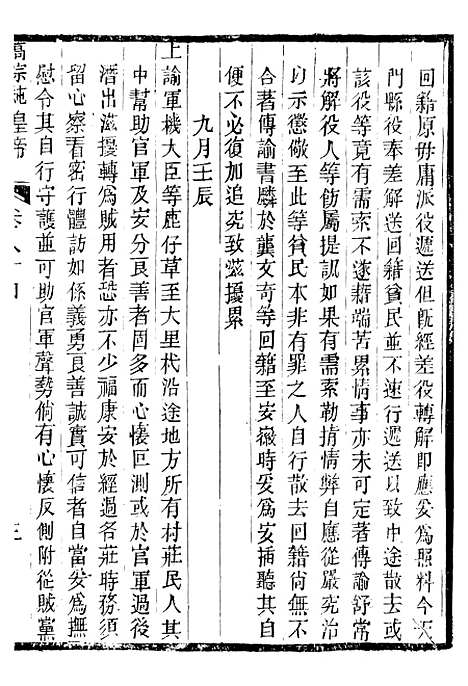 回籍原毋庸派役遞送但旣經差役轉解卽應妥爲照料今天
門縣役奉差解送回籍貧民並不速行遞送以致中途散去或
該役等竟有需索不遂藉端苦累情事亦未可定著傳諭舒常
將解役人等飭屬提訊如果有需索勒掯情弊自應從嚴究治
以示懲儆至此等貧民本非有罪之人自行散去回籍尙無不
合著傳諭書麟於龔文奇等回籍至安徽時妥爲安插聽其自
便不必復加追究致滋擾累
九月壬辰
上諭軍機大臣等鹿仔草至大里杙沿途地方所有村莊民人其
中幫助官軍及安分良善者固多而心懷叵測或於官軍過後
潛出滋擾轉爲賊用者恐亦不少福康安於經過各莊時務須
留心察看密行體訪如係義勇良善誠實可信者自當妥爲撫
慰令其自行守護並可助官軍聲勢倘有心懷反側附從賊黨
高宗純皇帝 卷八十四 三